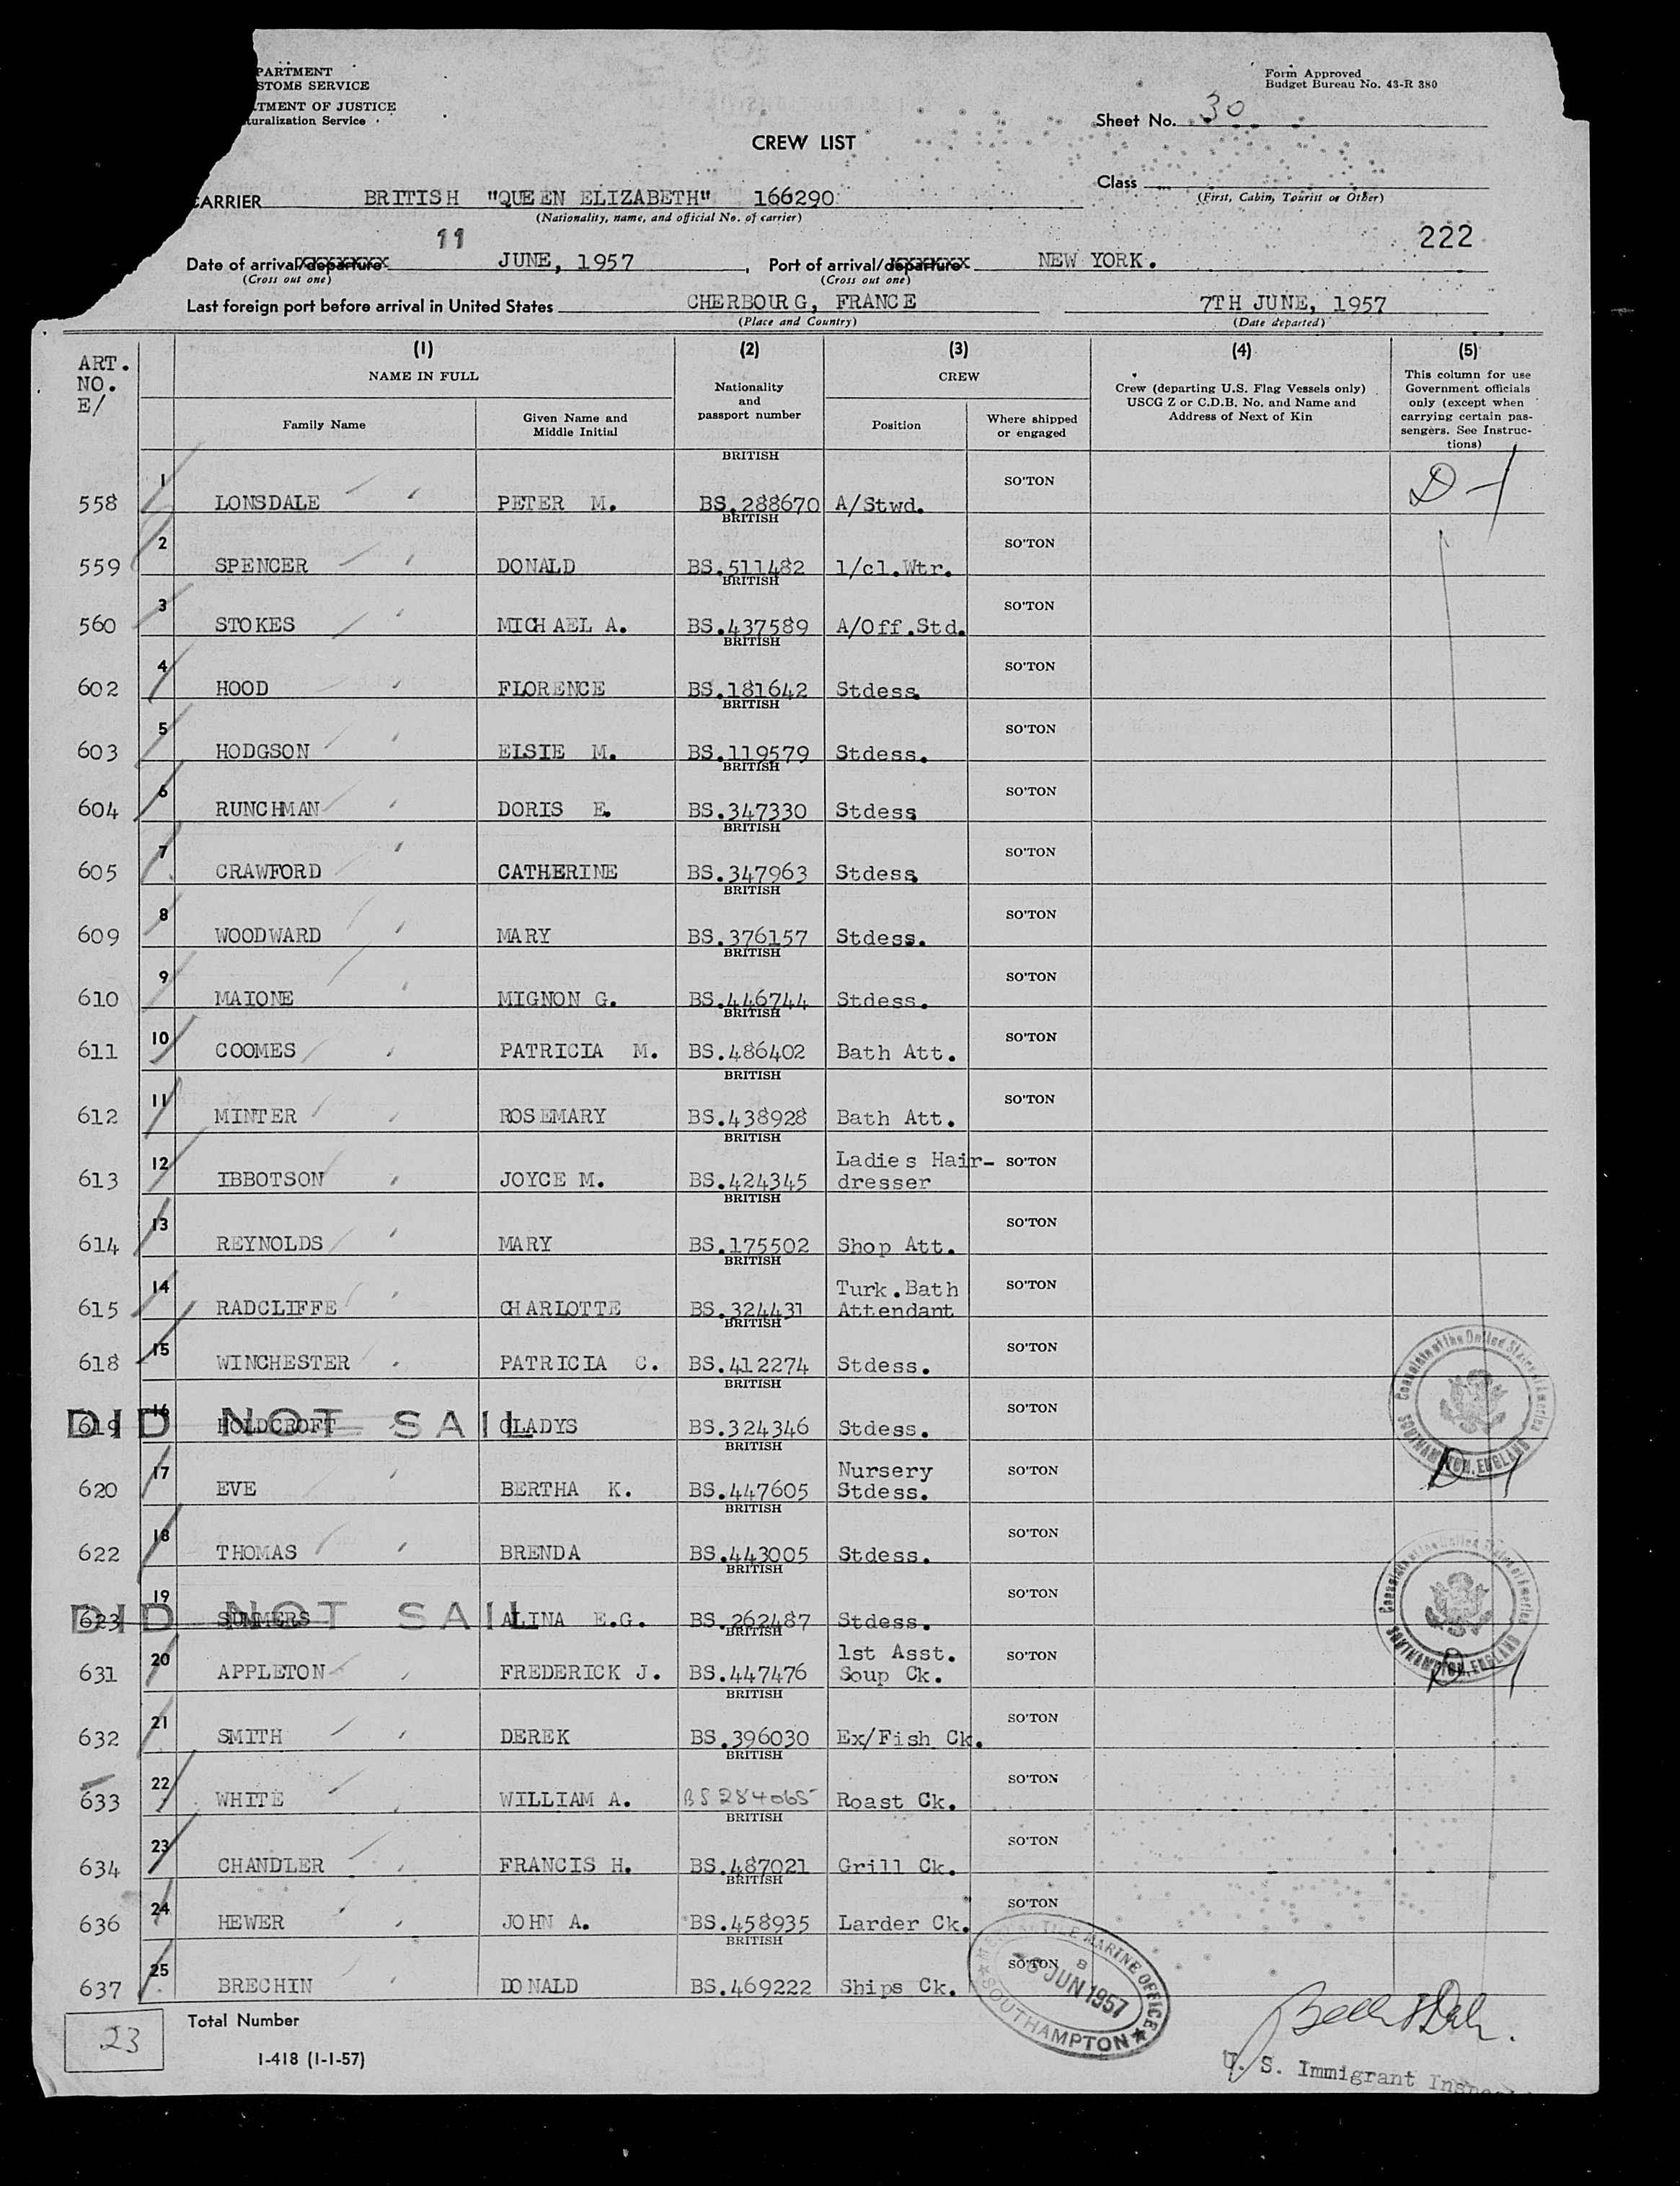 PARTMENT
STOMS SERVICE
TMENT OF JUSTICE
uralization Service
Form Approved
Budget Bureau No. 43-R 380
Sheet No. 30
CREW LIST
Class
(First, Cabin, Tourist or Other)
CARRIER BRITISH "QUEEN ELIZABETH" 166290
(Nationality, name, and official No. of carrier)
222
Date of arrival/departure 11 JUNE, 1957, Port of arrival/departure NEW YORK.
(Cross out one) (Cross out one)
Last foreign port before arrival in United States CHERBOURG, FRANCE 7TH JUNE, 1957
(Place and Country) (Date departed)
ART. NO. E/
(1) (2) (3) (4) (5)
NAME IN FULL
Family Name
Given Name and Middle Initial
Nationality and passport number
CREW
Position
Where shipped or engaged
Crew (departing U.S. Flag Vessels only)
USCG Z or C.D.B. No. and Name and
Address of Next of Kin
This column for use
Government officials
only (except when
carrying certain pas-
sengers. See Instruc-
tions)
558 1 LONSDALE PETER M. BRITISH BS.288670 A/Stwd. SO'TON D-1
559 2 SPENCER DONALD BRITISH BS.511482 1/cl.Wtr. SO'TON
560 3 STOKES MICHAEL A. BRITISH BS.437589 A/Off.Std. SO'TON
602 4 HOOD FLORENCE BRITISH BS.181642 Stdess. SO'TON
603 5 HODGSON ELSIE M. BRITISH BS.119579 Stdess. SO'TON
604 6 RUNCHMAN DORIS E. BRITISH BS.347330 Stdess SO'TON
605 7 CRAWFORD CATHERINE BRITISH BS.347963 Stdess SO'TON
609 8 WOODWARD MARY BRITISH BS.376157 Stdess. SO'TON
610 9 MAIONE MIGNON G. BRITISH BS.446744 Stdess. SO'TON
611 10 COOMES PATRICIA M. BRITISH BS.486402 Bath Att. SO'TON
612 11 MINTER ROSEMARY BRITISH BS.438928 Bath Att. SO'TON
613 12 IBBOTSON JOYCE M. BRITISH BS.424345 Ladies Hair-dresser SO'TON
614 13 REYNOLDS MARY BRITISH BS.175502 Shop Att. SO'TON
615 14 RADCLIFFE CHARLOTTE BRITISH BS.324431 Turk.Bath Attendant SO'TON
618 15 WINCHESTER PATRICIA C. BRITISH BS.412274 Stdess. SO'TON
619 16 HOLDCROFT GLADYS BRITISH BS.324346 Stdess. SO'TON
DID NOT SAIL
Consulate of the United States of America
SOUTHAMPTON, ENGLAND
620 17 EVE BERTHA K. BRITISH BS.447605 Nursery Stdess. SO'TON D-1
622 18 THOMAS BRENDA BRITISH BS.443005 Stdess. SO'TON
623 19 SUMMERS ALINA E.G. BRITISH BS.262487 Stdess. SO'TON
DID NOT SAIL
Consulate of the United States of America
SOUTHAMPTON, ENGLAND
631 20 APPLETON FREDERICK J. BRITISH BS.447476 1st Asst. Soup Ck. SO'TON D-1
632 21 SMITH DEREK BRITISH BS.396030 Ex/Fish Ck. SO'TON
633 22 WHITE WILLIAM A. BRITISH BS 284065 Roast Ck. SO'TON
634 23 CHANDLER FRANCIS H. BRITISH BS.487021 Grill Ck. SO'TON
636 24 HEWER JOHN A. BRITISH BS.458935 Larder Ck. SO'TON
637 25 BRECHIN DONALD BRITISH BS.469222 Ships Ck. SO'TON
MERCANTILE MARINE OFFICE
JUN 1957
SOUTHAMPTON
23 Total Number
I-418 (1-1-57)
U. S. Immigrant